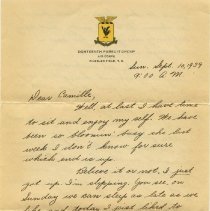 Sun. Sept. 10, 1939
9:00 A.M.
Dear Camille,
Well, at last I have time
to sit and enjoy my self. We have
been so bloomin' busy the last
week I don't know for sure
which end is up.
Believe it or not, I just
got up. I'm slipping. You see, on
Sunday we can sleep as late as we
today I just liked to